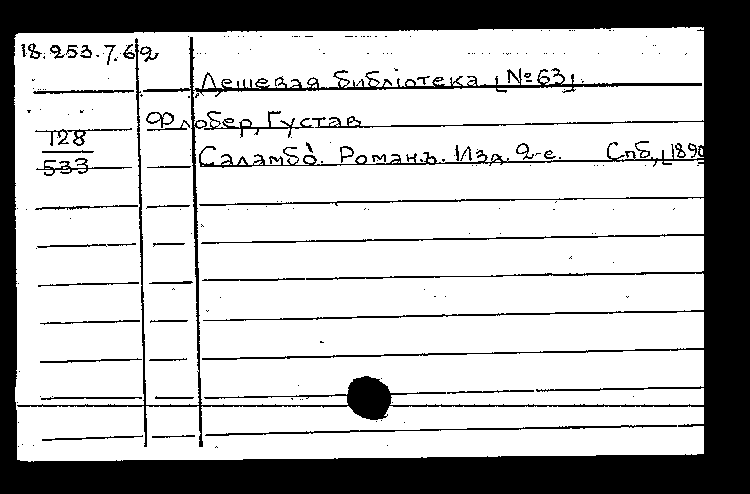 18.253.7.62
Дешевая библіотека [№ 63].
Флобер, Густав
128
Саламбо̀. Романъ. Изд. 2-е. Спб., [1890
533